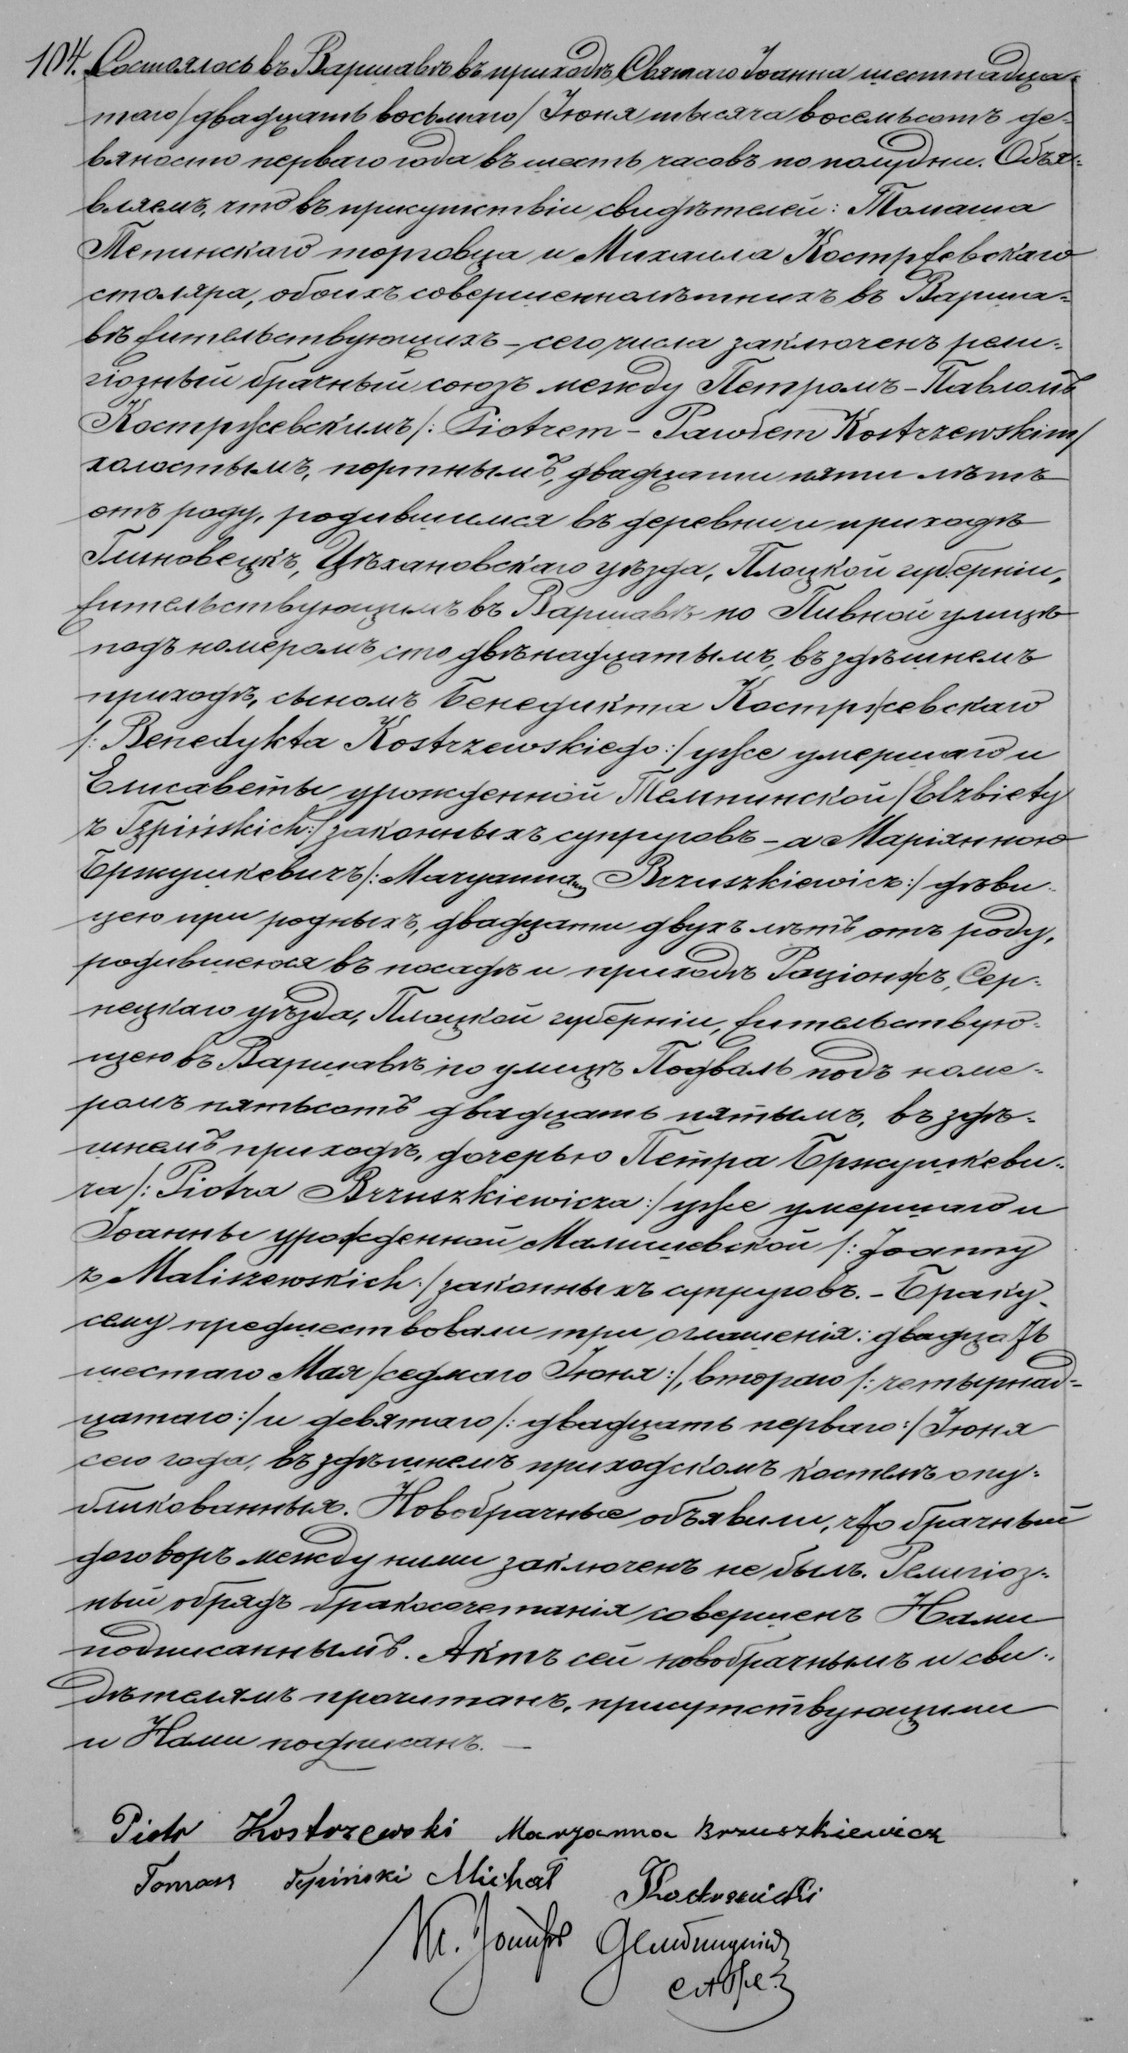 104. Состоялось въ Варшавѣ въ приходѣ Святаго Іоанна шестнадца-
таго /двадцать восьмаго/ Іюня тысяча восемьсотъ де-
вяносто перваго года въ шесть часовъ по полудни. Объя-
вляемъ, что въ присутствіи свидѣтелей: Томаша
Тепинскаго торговца и Михаила Костржевскаго
столяра, обоихъ совершеннолѣтнихъ въ Варша-
вѣ жительствующихъ – сего числа заключенъ рели-
гіозный брачный союзъ между Петромъ-Павломъ
Костржевскимъ /: Piotrem - Pawłem Kostrzewskim/
холостымъ, портнымъ, двадцати пяти лѣтъ
отъ роду, родившимся въ деревни и приходѣ
Глиновецкъ, Цѣхановскаго уѣзда, Плоцкой губерніи,
жительствующимъ въ Варшавѣ по Пивной улицѣ
подъ номеромъ сто двѣнадцатымъ, въ здѣшнемъ
приходѣ, сыномъ Бенедикта Костржевскаго
/: Benedykta Kostrzewskiego :/ уже умершаго и
Елисаветы урожденной Темпинской /Elżbiety
z Tępińskich :/ законныхъ супруговъ – а Маріянною
Бржушкевичъ /: Maryanną Brzuszkiewicz :/ дѣви-
цею при родныхъ, двадцати двухъ лѣтъ отъ роду,
родившеюся въ посадѣ и приходѣ Раціонжъ, Сер-
пецкаго уѣзда, Плоцкой губерніи, жительствую-
щею въ Варшавѣ по улицѣ Подваль подъ номе-
ромъ пятьсотъ двадцать пятымъ, въ здѣ-
шнемъ приходѣ, дочерью Петра Бржушкеви-
ча /: Piotra Brzuszkiewicza :/ уже умершаго и
Іоанны урожденной Малишевской /: Joanny
z Maliszewskich :/ законныхъ супруговъ. – Браку
сему предшествовали три оглашенія: двадцать
шестаго Мая /седмаго Іюня :/, втораго /: четырнад-
цатаго :/ и девятаго /: двадцать перваго :/ Іюня
сего года, въ здѣшнемъ приходскомъ костелѣ опу-
бликованныя. Новобрачные объявили, что брачный
договоръ между ними заключенъ не былъ. Религіоз-
ный обрядъ бракосочетанія совершенъ Нами
подписаннымъ. Актъ сей новобрачнымъ и сви-
дѣтелямъ прочитанъ, присутствующими
и Нами подписанъ. –
Piotr Kostrzewski Maryanna Brzuszkiewicz
Tomasz Tępiński Michał Kostrzewski